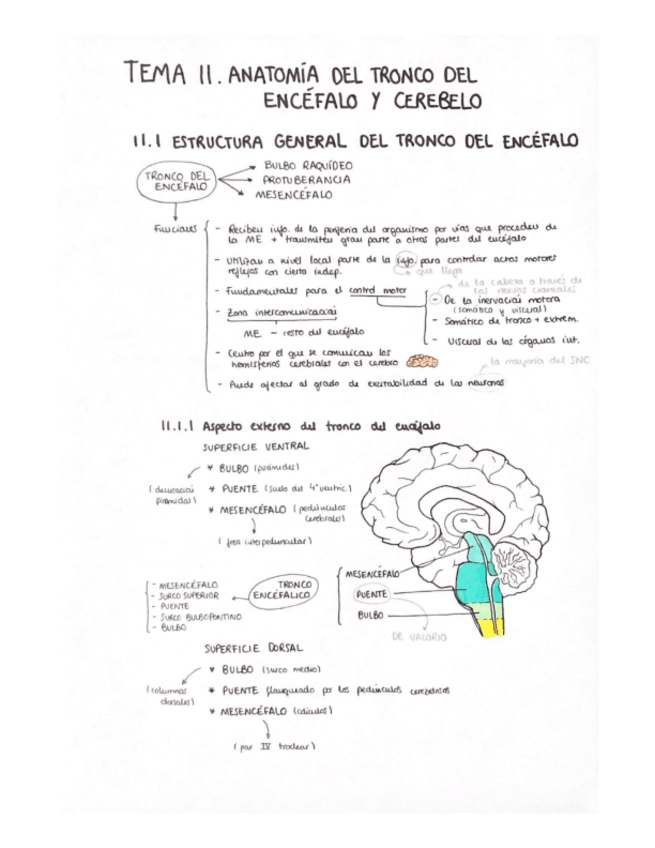 TEMA 11. ANATOMÍA DEL TRONCO DEL
ENCÉFALO Y CEREBELO
11.1 ESTRUCTURA GENERAL DEL TRONCO DEL ENCÉFALO
TRONCO DEL
ENCÉFALO
BULBO RAQUÍDEO
PROTUBERANCIA
MESENCÉFALO
Funciones
- Reciben info. de la periferia del organismo por vías que proceden de
la ME + transmiten gran parte a otras partes del encéfalo
- Utilizan a nivel local parte de la info. para controlar actos motores
reflejos con cierta indep.
que llega
- Fundamentales para el control motor
de la cabeza a través de
los nervios craneales
- De la inervación motora
(somática y visceral)
- Somático de tronco + extrem.
- Visceral de los órganos int.
- Zona intercomunicación
ME - resto del encéfalo
- Centro por el que se comunican los
hemisferios cerebrales con el cerebro
la mayoría del SNC
- Puede afectar al grado de excitabilidad de las neuronas
11.1.1 Aspecto externo del tronco del encéfalo
SUPERFICIE VENTRAL
* BULBO (pirámides)
(decusación
piramidal)
* PUENTE (suelo del 4º ventríc.)
* MESENCÉFALO (pedúnculos
cerebrales)
(fosa interpeduncular)
- MESENCÉFALO
- SURCO SUPERIOR
- PUENTE
- SURCO BULBOPONTINO
- BULBO
TRONCO
ENCEFÁLICO
MESENCÉFALO
PUENTE
BULBO
DE VALORIO
SUPERFICIE DORSAL
* BULBO (surco medio)
(columnas
dorsales)
* PUENTE flanqueado por los pedúnculos cerebelosos
* MESENCÉFALO (colículos)
(par IV troclear)